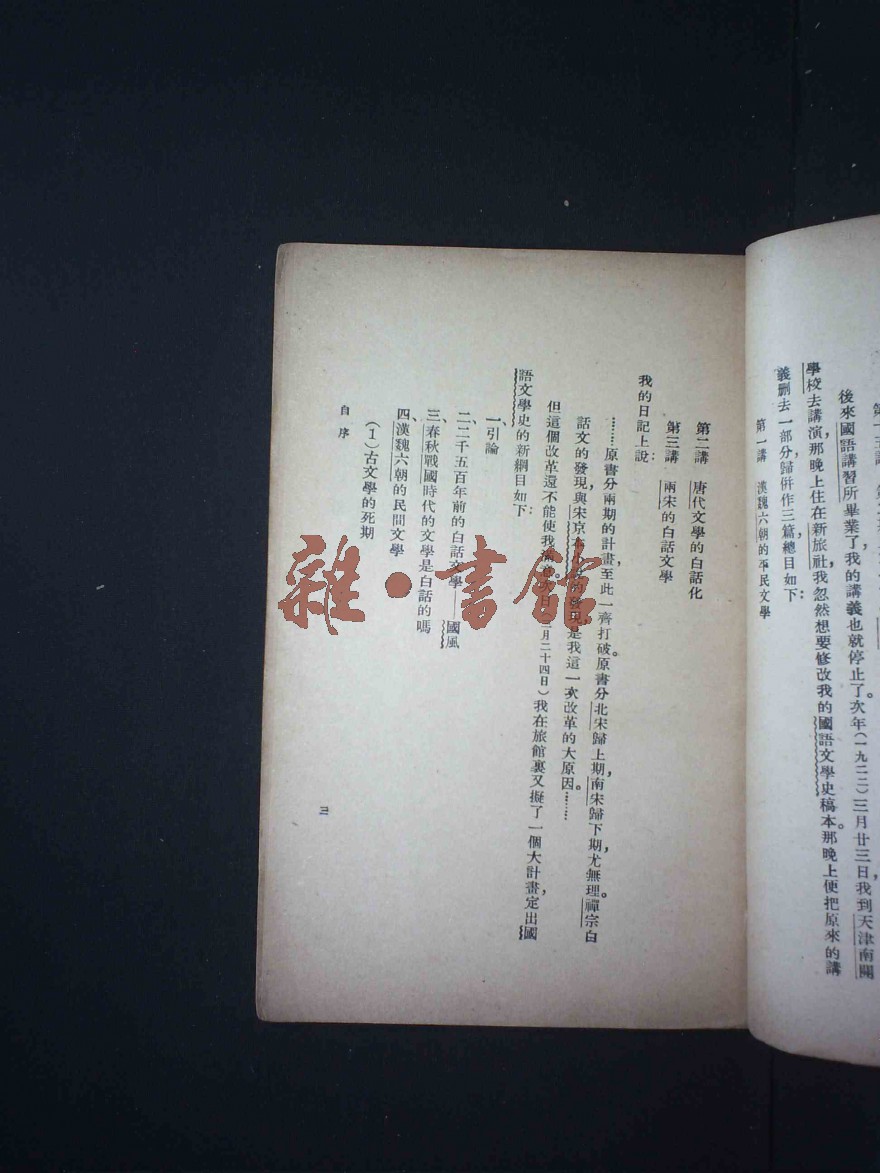 後來國語講習所畢業了，我的講義也就停止了。次年（一九二二）三月廿三日，我到天津南開
學校去講演，那晚上住在新旅社，我忽然想要修改我的國語文學史稿本。那晚上便把原來的講
義刪去一部分，歸併作三篇，總目如下：
第一講　漢魏六朝的平民文學
第二講　唐代文學的白話化
第三講　兩宋的白話文學
我的日記上說：
………原書分兩期的計畫，至此一齊打破。原書分北宋歸上期，南宋歸下期，尤無理。禪宗白
話文的發現，與宋京的發現，是我這一次改革的大原因。………
但這個改革還不能使我月二十四日）我在旅館裏又擬了一個大計畫，定出國
語文學史的新綱目如下：
一、引論
二、二千五百年前的白話文學——國風
三、春秋戰國時代的文學是白話的嗎
四、漢魏六朝的民間文學
（1）古文學的死期
自序
三
雜·書館